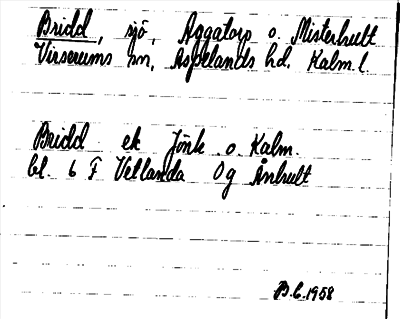 Bridd, sjö, Aggatorp o. Misterhult
Virserums sn, Aspelands hd. Kalm. l.
Bridd ek Jönk o. Kalm.
bl. 6 F Vetlanda Og Århult
B.C. 1958